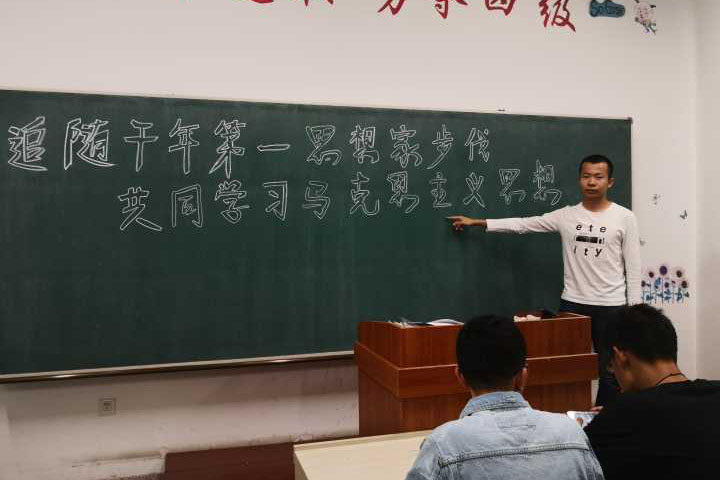 级
追随千年第一思想家步伐
共同学习马克思主义思想
ete
ity